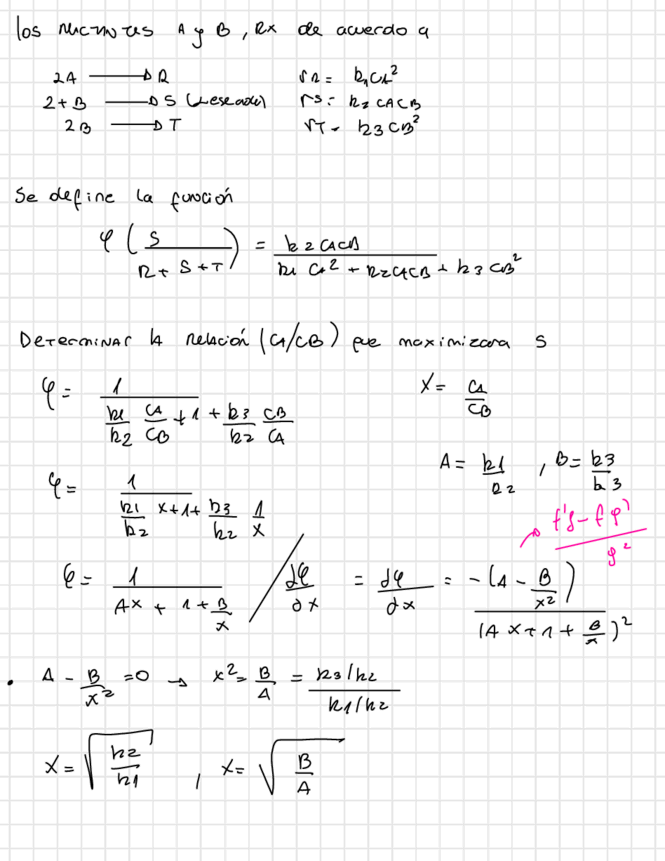 los reactivos A y B, Rx de acuerdo a
2A → R    rR = k1CA²
2+B → S (Deseado)    rS: k2 CACB
2B → T    rT = k3 CB²
Se define la función
φ ( S / R + S + T ) = k2 CACB / k1 CA² + k2CACB + k3 CB²
Determinar la relación (CA/CB) que maximizara S
φ = 1 / k1/k2 CA/CB + 1 + k3/k2 CB/CA    X = CA/CB
A = k1/k2 , B = k3/k3
φ = 1 / k1/k2 X + 1 + k3/k2 1/X    f'g - fg' / g²
φ = 1 / AX + 1 + B/X / dφ/dx = dφ/dx = -(A - B/x²) / (AX + 1 + B/x)²
• A - B/x² = 0 → x² = B/A = k3/k2 / k1/k2
X = √k2/k1 , X = √B/A